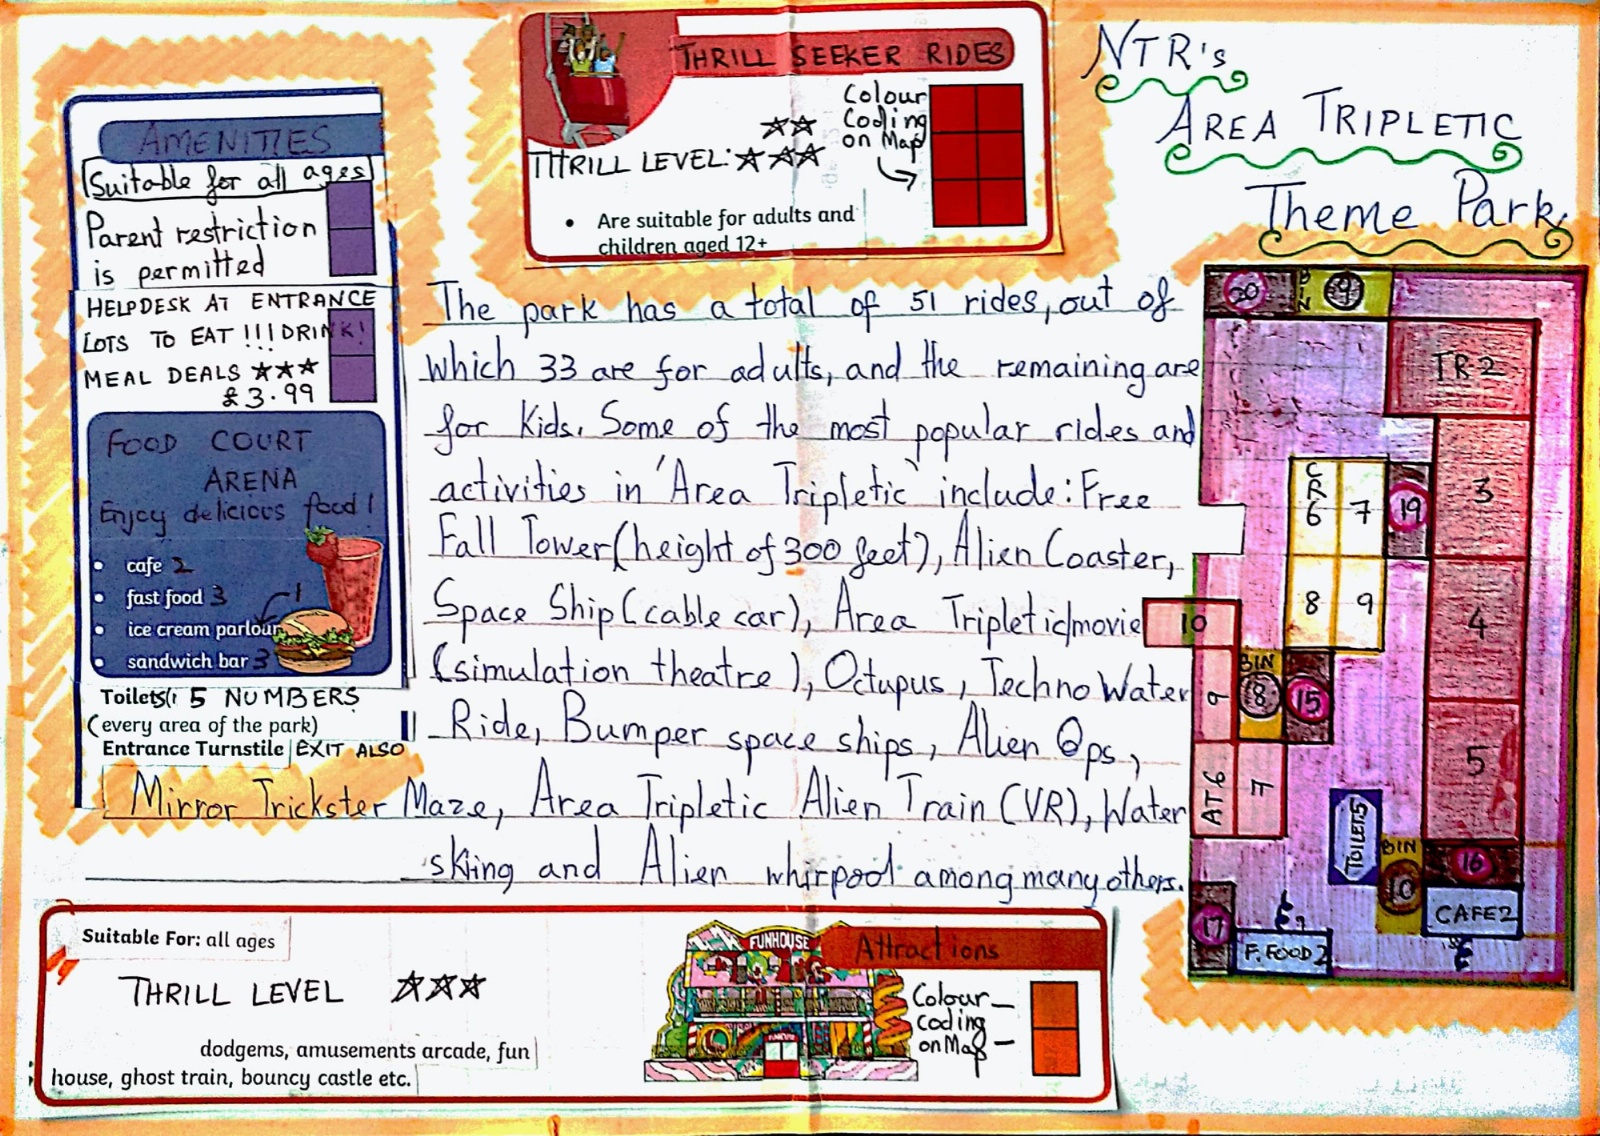 NTR's
AREA TRIPLETIC
Theme Park
THRILL SEEKER RIDES
Colour
Coding
on Map
THRILL LEVEL:
• Are suitable for adults and
children aged 12+
AMENITIES
Suitable for all ages
Parent restriction
is permitted
HELPDESK AT ENTRANCE
LOTS TO EAT !!! DRINK!
MEAL DEALS ★★★
£3.99
FOOD COURT
ARENA
Enjoy delicious food!
• cafe 2
• fast food 3
• ice cream parlour 1
• sandwich bar 3
Toilets(: 5 NUMBERS
(every area of the park)
Entrance Turnstile EXIT ALSO
The park has a total of 51 rides, out of
which 33 are for adults, and the remaining are
for Kids. Some of the most popular rides and
activities in 'Area Tripletic' include: Free
Fall Tower(height of 300 feet), Alien Coaster,
Space Ship(cable car), Area Tripletic movie
(simulation theatre), Octupus, Techno Water
Ride, Bumper space ships, Alien Ops,
Mirror Trickster Maze, Area Tripletic Alien Train (VR), Water
skiing and Alien whirpool among many others.
20
BIN
9
TR 2
3
CR
6
7
19
8
9
4
10
9
BIN
8
15
5
AT 6
7
TOILET 5
BIN
10
16
17
F. FOOD 2
CAFE 2
Suitable For: all ages
THRILL LEVEL ★★★
dodgems, amusements arcade, fun
house, ghost train, bouncy castle etc.
FUNHOUSE
Attractions
Colour
coding
on Map